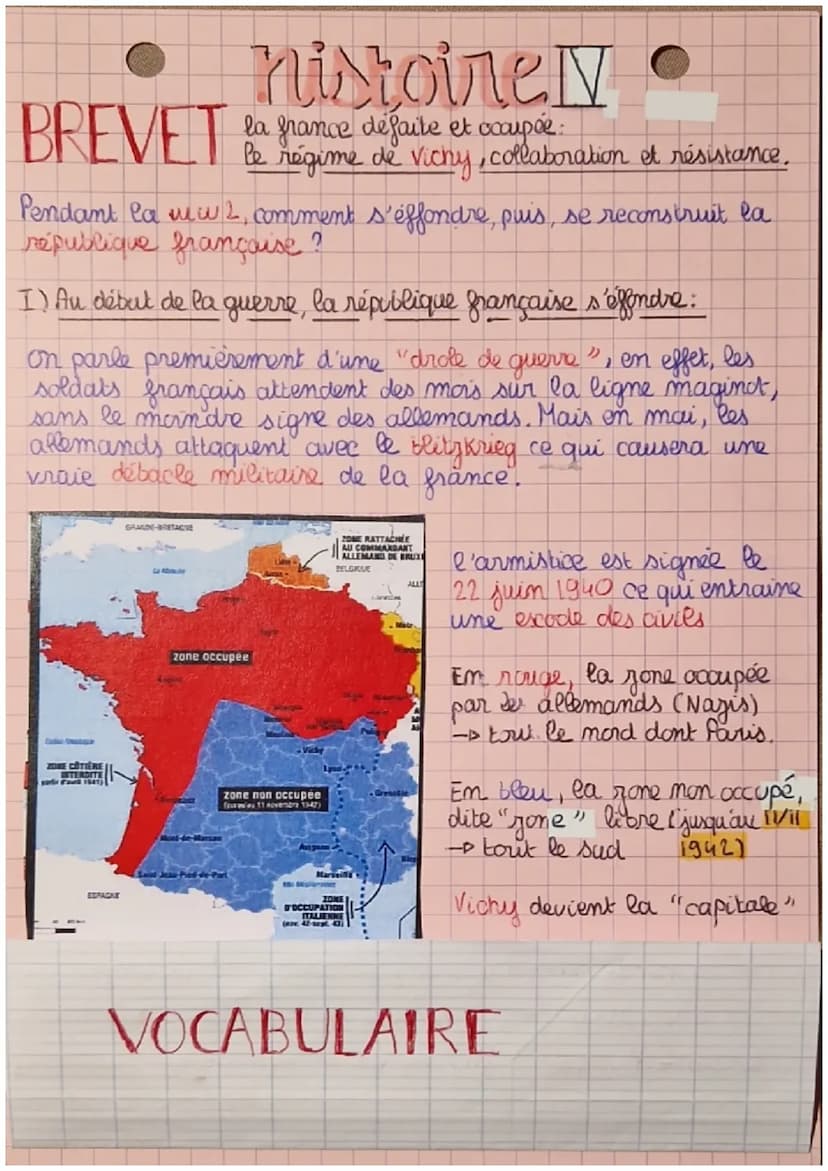 histoire IV
BREVET
la france défaite et occupée:
le régime de Vichy, collaboration et résistance.
Pendant la WW2, comment s'éffondre, puis, se reconstruit la
république française ?
I) Au début de la guerre, la république française s'éffondre:
On parle premièrement d'une "drole de guerre", en effet, les
soldats français attendent des mois sur la ligne maginot,
sans le moindre signe des allemands. Mais en mai, les
allemands attaquent avec le blitzkrieg ce qui causera une
vraie débacle militaire de la france.
GRANDE-BRETAGNE
ZONE RATTACHÉE
AU COMMANDANT
ALLEMAND DE BRUX
BELGIQUE
La Manche
Lille
Metz
zone occupée
Vichy
Lyon
ZONE CÔTIÈRE
INTERDITE
Bordeaux
Grenoble
zone non occupée
(jusqu'au 11 novembre 1942)
Mont-de-Marsan
Avignon
Saint-Jean-Pied-de-Port
Marseille
ESPAGNE
ZONE
D'OCCUPATION
ITALIENNE
(nov. 42-sept. 43)
l'armistice est signée le
22 juin 1940 ce qui entraine
une escode des civils
En rouge, la zone occupée
par les allemands (Nazis)
→ tout le nord dont Paris.
En bleu, la zone non occupé,
dite "zone" libre (jusqu'au 11/11
→ tout le sud 1942)
Vichy devient la "capitale"
VOCABULAIRE